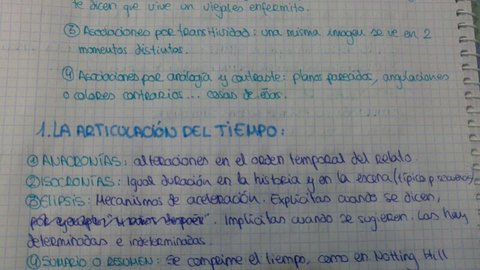 te dicen que vive un viejales enfermito.
③ Asociaciones por transitividad: una misma imagen se ve en 2
momentos distintos.
④ Asociaciones por analogía y contraste: planos parecidos, angulaciones
o colores contrarios... cosas de esas.
1. LA ARTICULACIÓN DEL TIEMPO:
① ANACRONÍAS: alteraciones en el orden temporal del relato.
② ISOCRONÍAS: Igual duración en la historia y en la escena (típica p
③ ELIPSIS: Mecanismos de aceleración. Explícitas cuando se dicen,
por ejemplo Implícitas cuando se sugieren. Las hay
determinadas e indeterminadas.
④ SUMARIO O RESUMEN: Se comprime el tiempo, como en Notting Hill